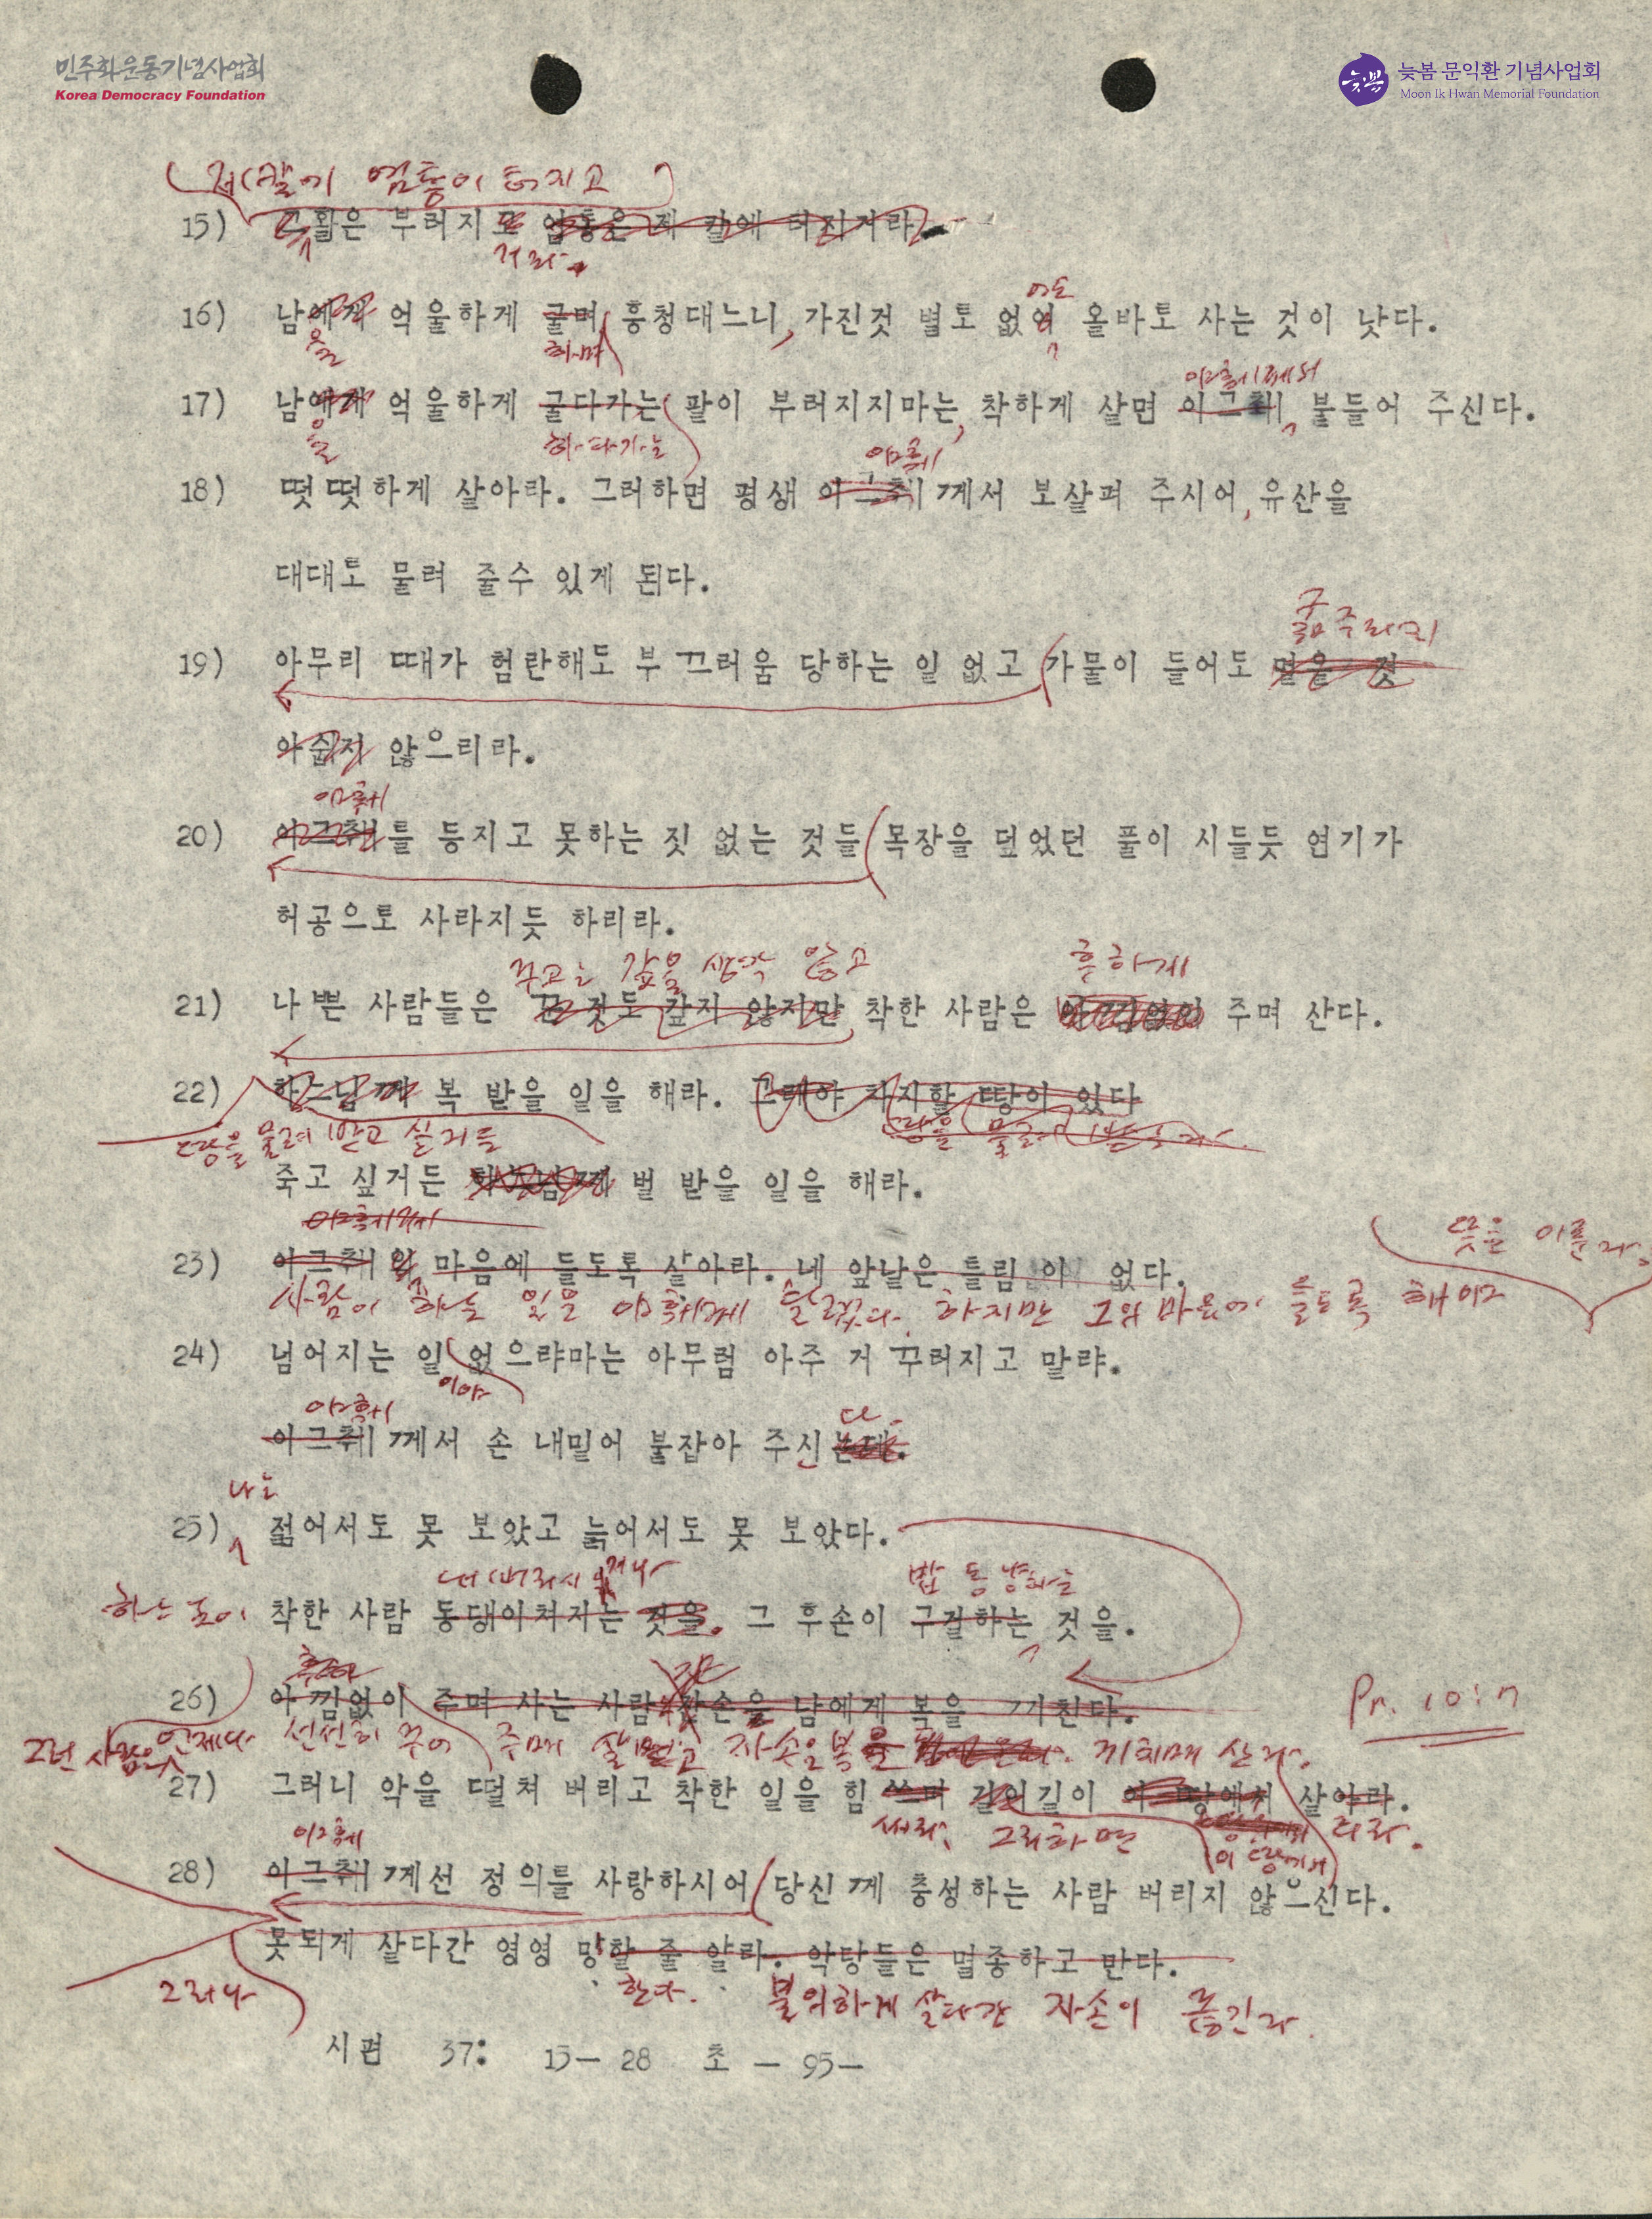 민주화운동기념사업회
Korea Democracy Foundation
늦봄
늦봄 문익환 기념사업회
Moon Ik Hwan Memorial Foundation
제 칼에 염통이 터지고
15) 그 활은 부러지고 염통은 제 칼에 터지거라
거라.
16) 남에게 억울하게 굴며 흥청대느니, 가진것 별로 없이 올바로 사는 것이 낫다.
을 하며
17) 남에게 억울하게 굴다가는 팔이 부러지지마는, 착하게 살면 야그훼 붙들어 주신다.
을 하다가는
야훼
18) 떳떳하게 살아라. 그러하면 평생 께서 보살펴 주시어, 유산을
대대로 물려 줄수 있게 된다.
굶주리지
19) 아무리 때가 험란해도 부끄러움 당하는 일 없고 가물이 들어도 먹을 것
아쉽지 않으리라.
야훼
20) 를 등지고 못하는 짓 없는 것들 목장을 덮었던 풀이 시들듯 연기가
허공으로 사라지듯 하리라.
꾸고는 갚을 생각 않고 흔하게
21) 나쁜 사람들은 꾼 것도 갚지 않지만 착한 사람은 아낌없이 주며 산다.
22) 하느님께 복 받을 일을 해라. 그래야 차지할 땅이 있다
땅을 물려 받고 싶거든
죽고 싶거든 하느님께 벌 받을 일을 해라.
23) 마음에 들도록 살아라. 네 앞날은 틀림이 없다.
뜻을 이룬다.
사람이 하는 일은 야훼께 달렸다. 하지만 그의 마음에 들도록 해야
24) 넘어지는 일 없으랴마는 아무렴 아주 거꾸러지고 말랴.
이야
야훼 다.
께서 손 내밀어 붙잡아 주시는데.
나는
25) 젊어서도 못 보았고 늙어서도 못 보았다.
내버려지거나 밥 동냥하는
착한 사람 동댕이쳐지는 것을. 그 후손이 구걸하는 것을.
26) 아낌없이 주며 사는 사람 자손을 남에게 복을 끼친다.
Pr. 10:7
그런 사람은 언제나 선선히 꾸어 주며 살고 자손은 복을 끼치며 산다.
27) 그러니 악을 떨쳐 버리고 착한 일을 힘 쓰며 길이길이 이 땅에서 살아라.
써라. 그러하면 이 땅에서 리라.
야훼
28) 께선 정의를 사랑하시어 당신께 충성하는 사람 버리지 않으신다.
못되게 살다간 영영 망할 줄 알라. 악당들은 멸종하고 만다.
그러나 한다. 불의하게 살다간 자손이 끊긴다.
시편 37: 15— 28 초 — 95—